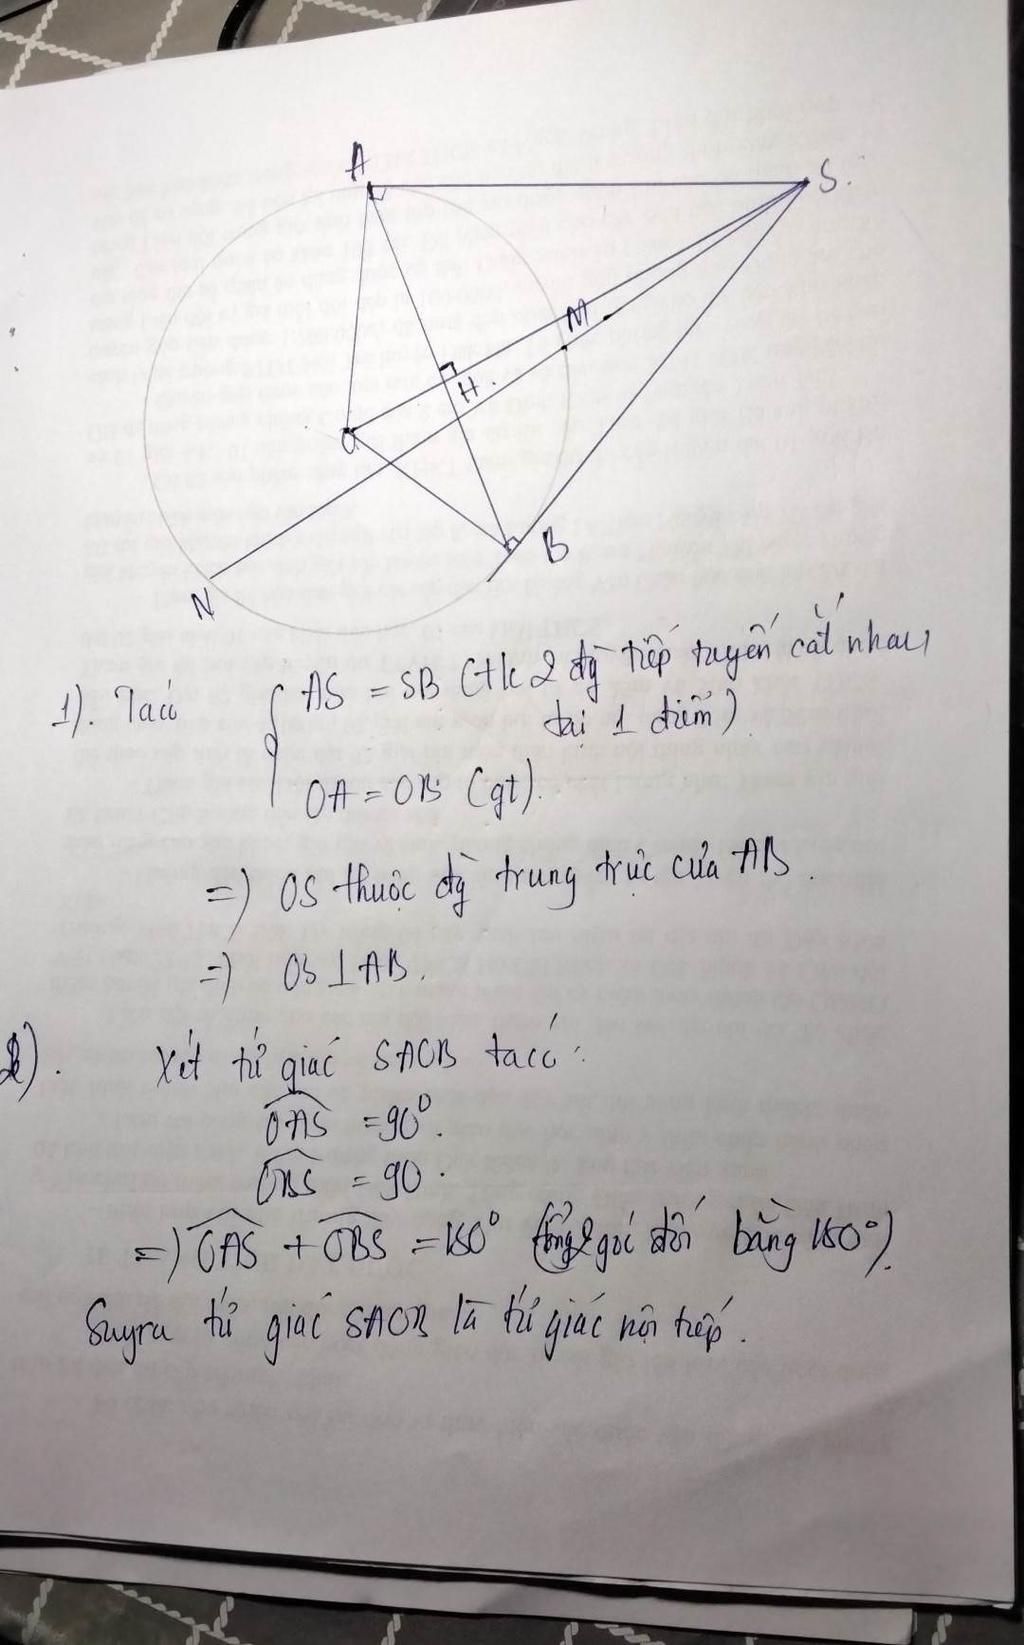 A
S.
M
H.
O
B
N
1). Ta có { AS = SB (t/c 2 đg tiếp tuyến cắt nhau
tại 1 điểm)
OA = OB (gt).
=) OS thuộc đg trung trực của AB.
=) OS ⊥ AB.
2). Xét tứ giác SAOB ta có:
OAS = 90°.
OBS = 90.
=) OAS + OBS = 180° (tổng 2 góc đối bằng 180°).
Suy ra tứ giác SAOB là tứ giác nội tiếp.